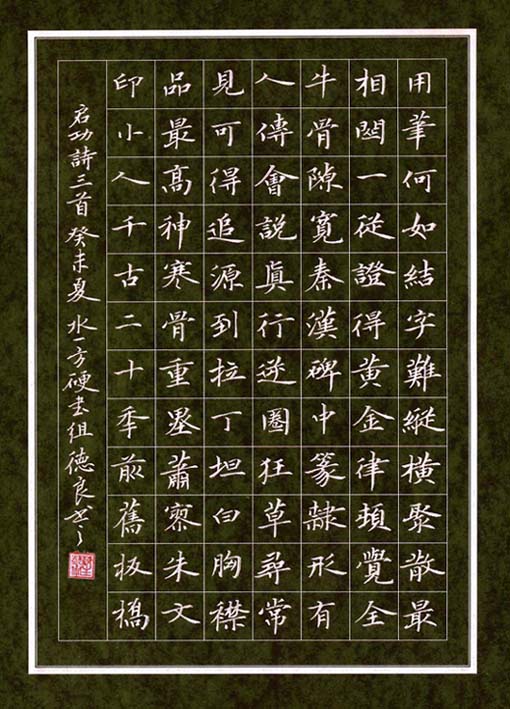 用筆何如結字難縱橫聚散最
相關一從證得黃金律頓覺全
牛骨隙寬秦漢碑中篆隸形有
人傳會説真行逆圈狂草尋常
見可得追源到拉丁坦白胸襟
品最高神寒骨重墨蕭寥朱文
印小人千古二十秊前舊板橋
启功詩三首癸未夏水一方硬书组德良书